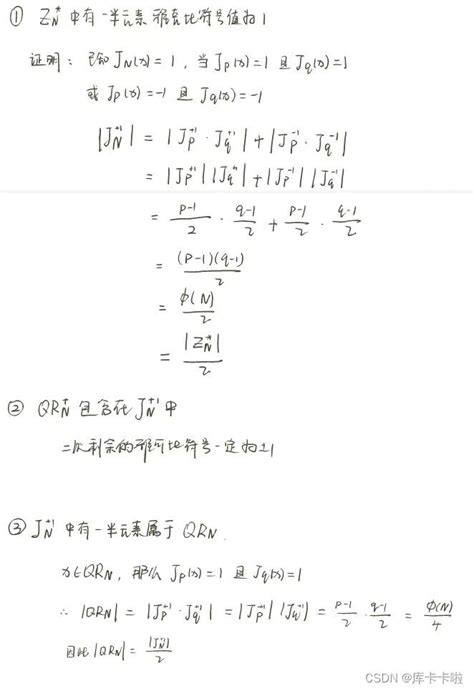 ① Z_N^* 中有一半元素雅克比符号值为1
证明：已知 J_N(x)=1，当 J_p(x)=1 且 J_q(x)=1
或 J_p(x)=-1 且 J_q(x)=-1
|J_N^{+1}| = |J_p^{+1}·J_q^{+1}|+|J_p^{-1}·J_q^{-1}|
= |J_p^{+1}||J_q^{+1}|+|J_p^{-1}||J_q^{-1}|
= \frac{p-1}{2}·\frac{q-1}{2}+\frac{p-1}{2}·\frac{q-1}{2}
= \frac{(p-1)(q-1)}{2}
= \frac{φ(N)}{2}
= \frac{|Z_N^*|}{2}
② QR_N^* 包含在 J_N^{+1} 中
二次剩余的雅可比符号一定为±1
③ J_N^{+1} 中有一半元素属于 QR_N.
x∈QR_N，那么 J_p(x)=1 且 J_q(x)=1
∴ |QR_N| = |J_p^{+1}·J_q^{+1}| = |J_p^{+1}||J_q^{+1}| = \frac{p-1}{2}·\frac{q-1}{2} = \frac{φ(N)}{4}
因此 |QR_N| = \frac{|J_N^{+1}|}{2}
CSDN @库卡卡啦